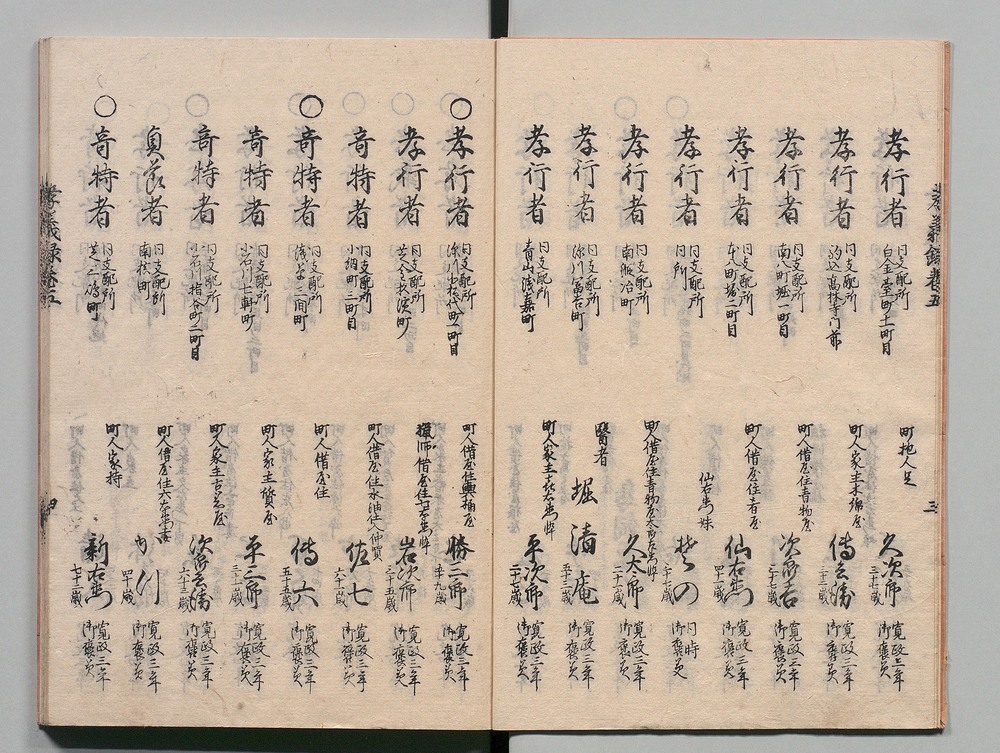 孝義録巻五
三
孝行者 同支配所 白金台町十一町目 町抱人足 久次郎 三十七歳 寛政三年 御褒美
孝行者 同支配所 駒込高林寺門前 町人家主木綿屋 伝兵衛 寛政三年 御褒美
孝行者 同支配所 南八町堀一町目 町人借屋住青物屋 次郎吉 寛政三年 御褒美
孝行者 同支配所 本八町堀二町目 町人借屋住肴屋 仙右衛門 四十一歳 寛政三年 御褒美
孝行者 同支配所 同所 仙右衛門妹 その 三十七歳 同時 御褒美
孝行者 同支配所 南鍛冶町 町人借屋住青物屋太郎右衛門忰 久太郎 二十一歳 寛政三年 御褒美
孝行者 同支配所 深川冨吉町 醫者 堀清庵 五十三歳 寛政三年 御褒美
孝行者 同支配所 青山浅嘉町 町人家主喜右衛門忰 平次郎 二十七歳 寛政三年 御褒美
○孝行者 同支配所 深川 町一町目 町人借屋住 桶屋 勝三郎 五十九歳 寛政三年 御褒美
孝行者 同支配所 芝金杉浜町 猟師借屋住 忰 岩次郎 三十五歳 寛政三年 御褒美
奇特者 同支配所 小網町三町目 町人借屋住水油仕入仲買 佐七 六十一歳 寛政三年 御褒美
○奇特者 同支配所 浅草三間町 町人借屋住 傳六 五十五歳 寛政三年 御褒美
奇特者 同支配所 小石川七軒町 町人家主質屋 平三郎 三十一歳 寛政三年 御褒美
奇特者 同支配所 小石川指谷町二町目 町人家主古着屋 次郎兵衛 六十三歳 寛政三年 御褒美
貞節者 同支配所 南 町 町人借屋住六左衛門妻 かつ 四十歳 寛政三年 御褒美
○奇特者 同支配所 芝 町 町人家持 新右衛門 七十歳 寛政三年 御褒美
孝義録巻五
四